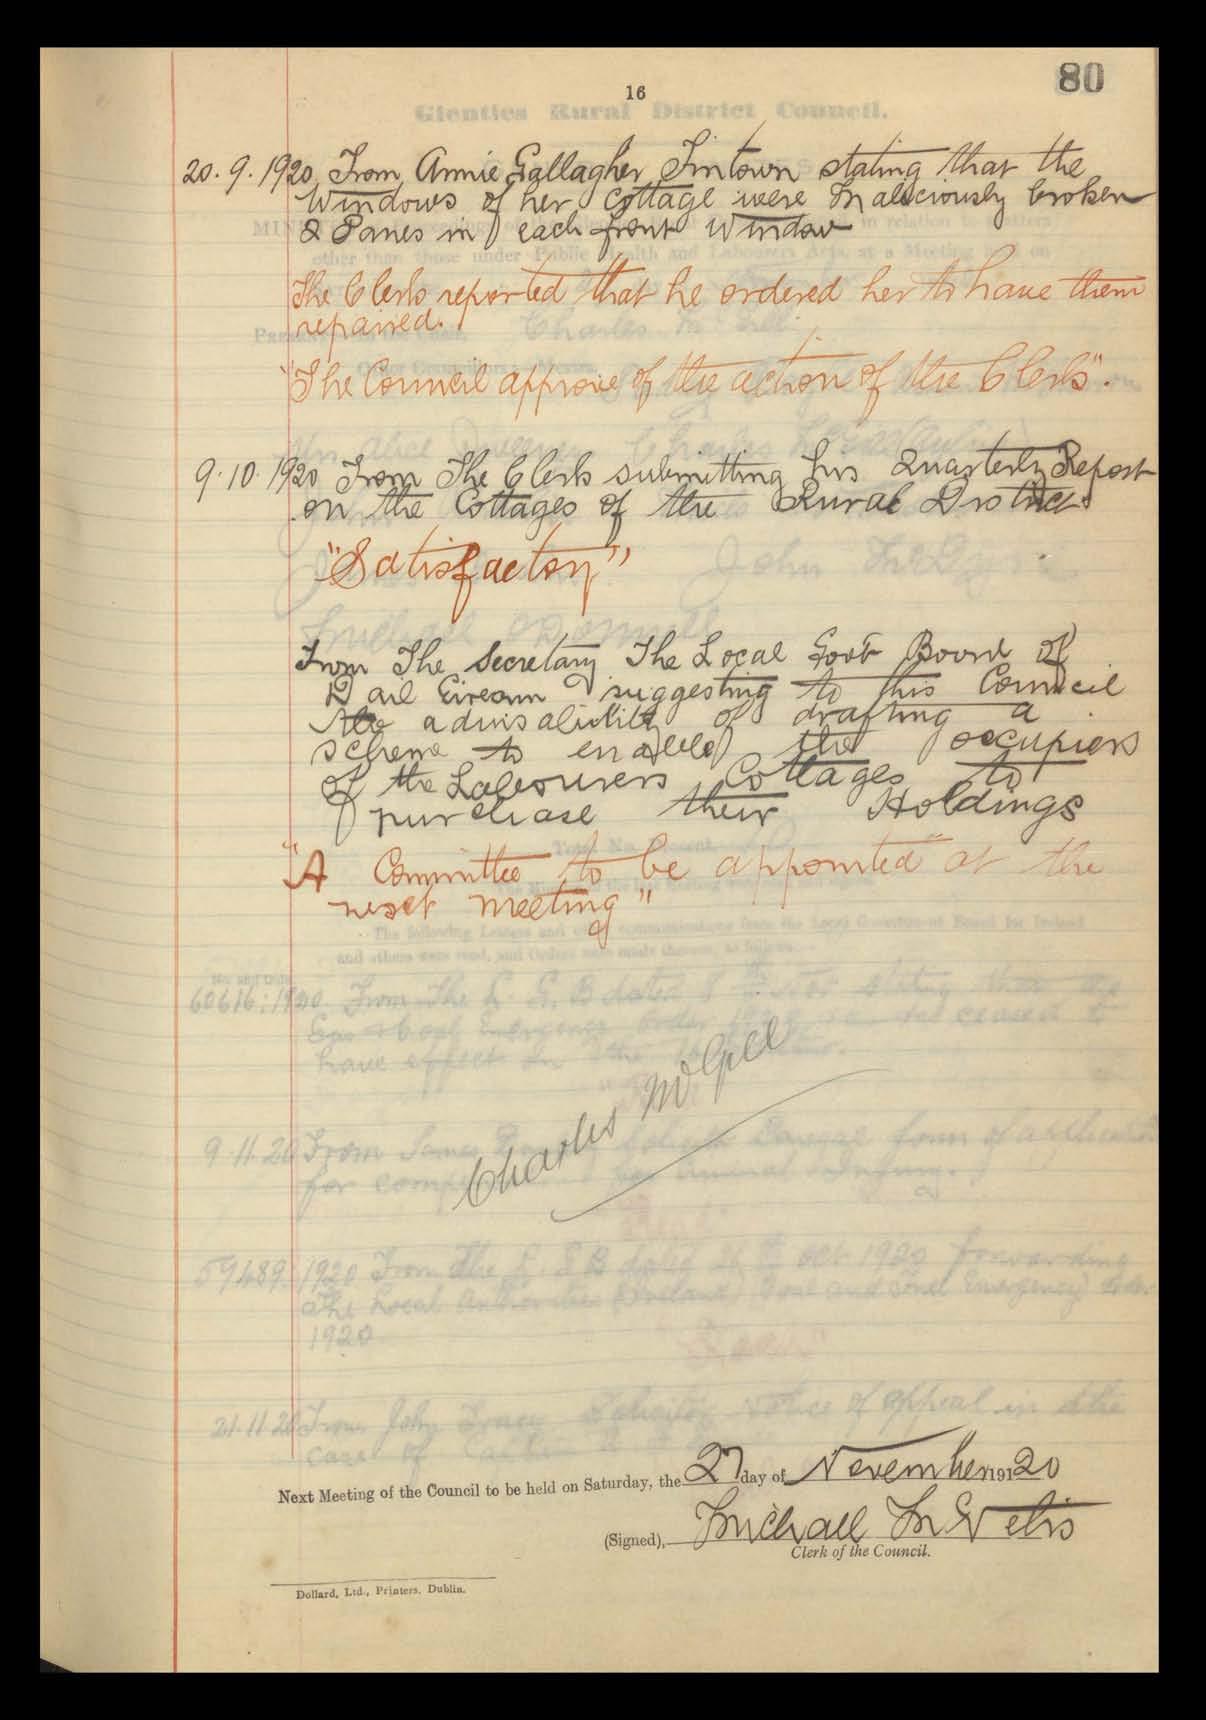 80
16
20.9.1920 From Annie Gallagher Fintown stating that the
Windows of her Cottage were Maliciously broken
2 Panes in each front Window
The Clerk reported that he ordered her to have them
repaired.
"The Council approve of the action of the Clerk".
9.10.1920 From The Clerk submitting his Quarterly Report
on the Cottages of the Rural District
"Satisfactory"
From The Secretary The Local Govt Board of
Dail Eireann suggesting to this Council
the advisability of drafting a
scheme to enable the occupiers
of the Labourers Cottages to
purchase their Holdings
"A Committee to be appointed at the
next meeting"
Charles McGill
Next Meeting of the Council to be held on Saturday, the 27 day of November 191 20
(Signed), Michael
Clerk of the Council.
Dollard, Ltd., Printers, Dublin.